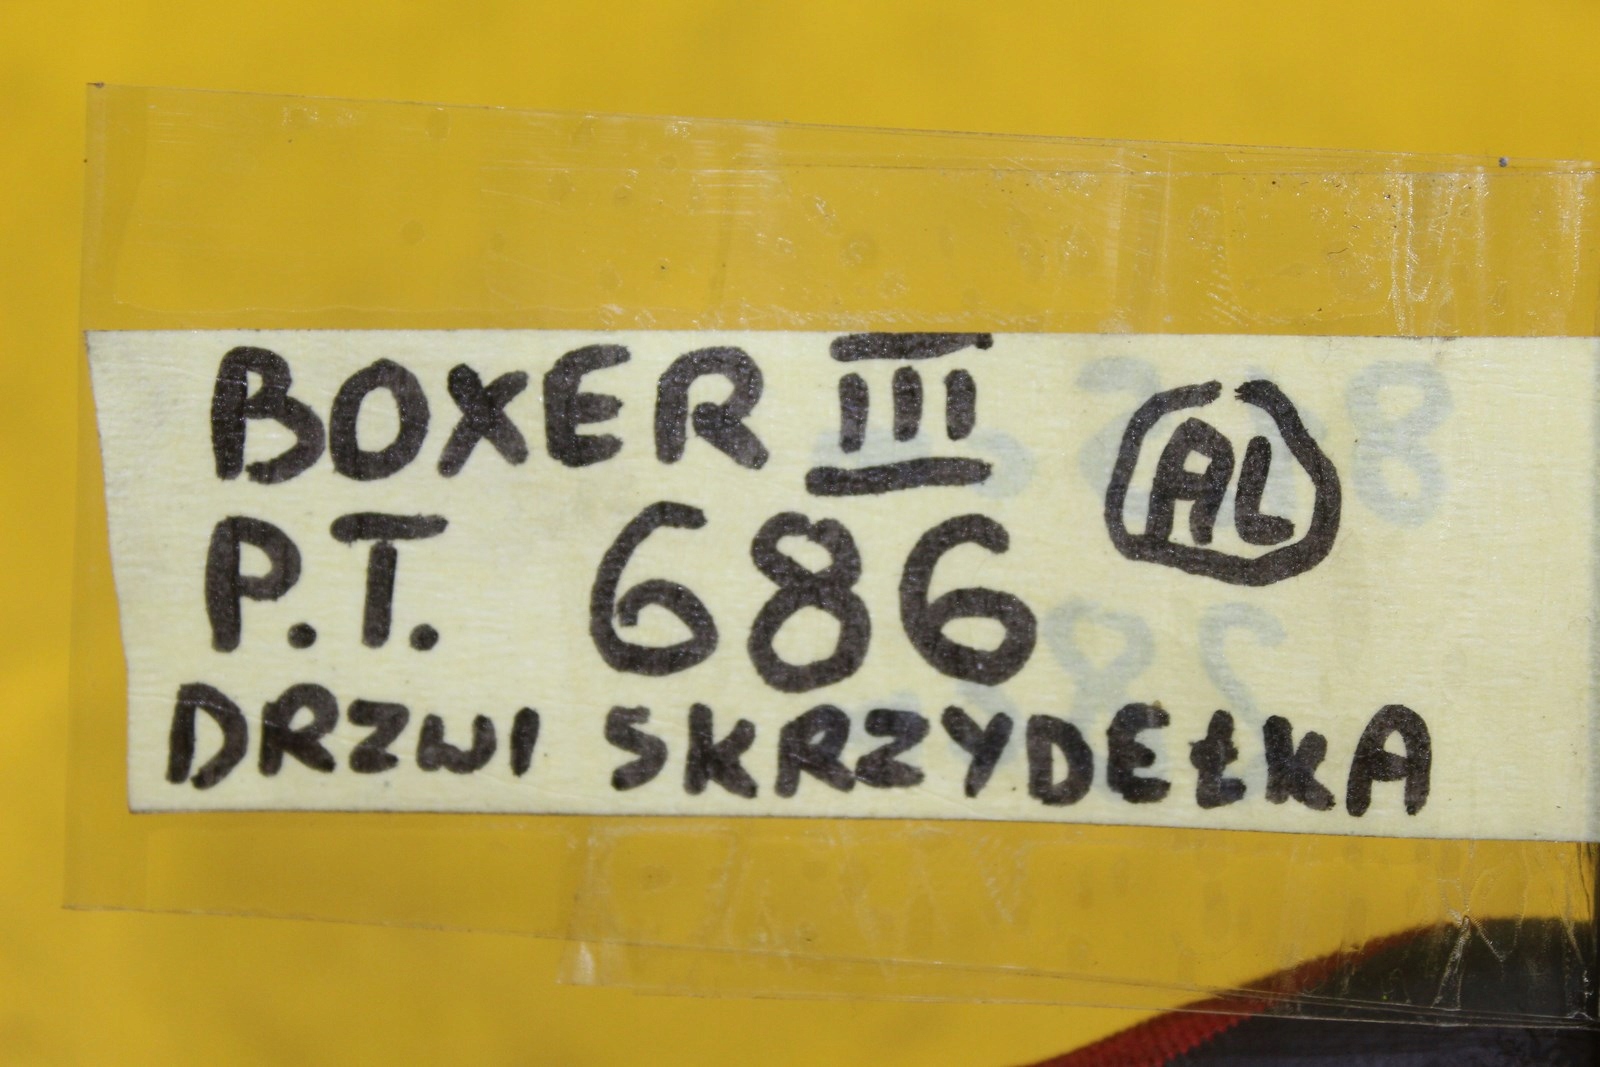 BOXER III
AL
P.T. 686
DRZWI SKRZYDEŁKA